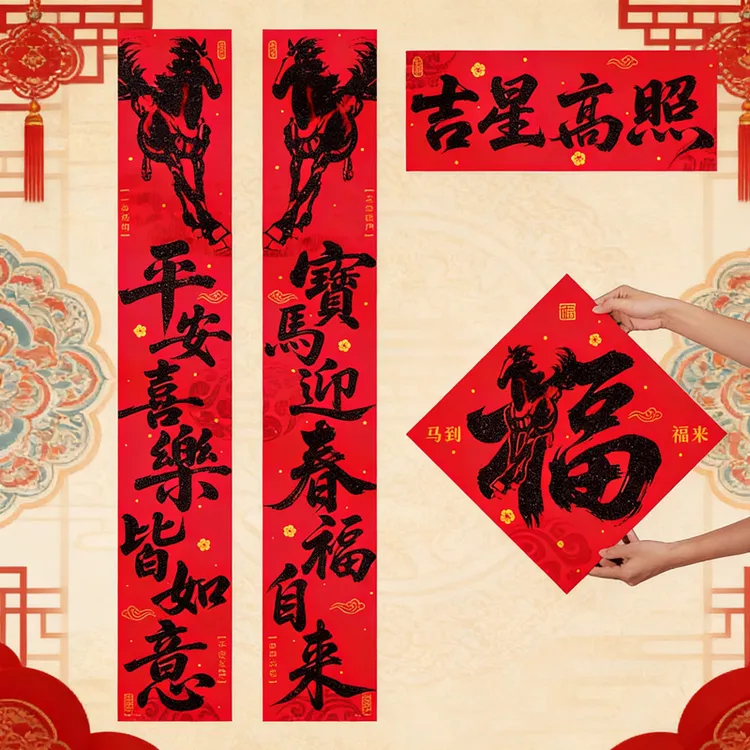 吉星高照
寶馬迎春福自来
平安喜樂皆如意
福
马到
福来